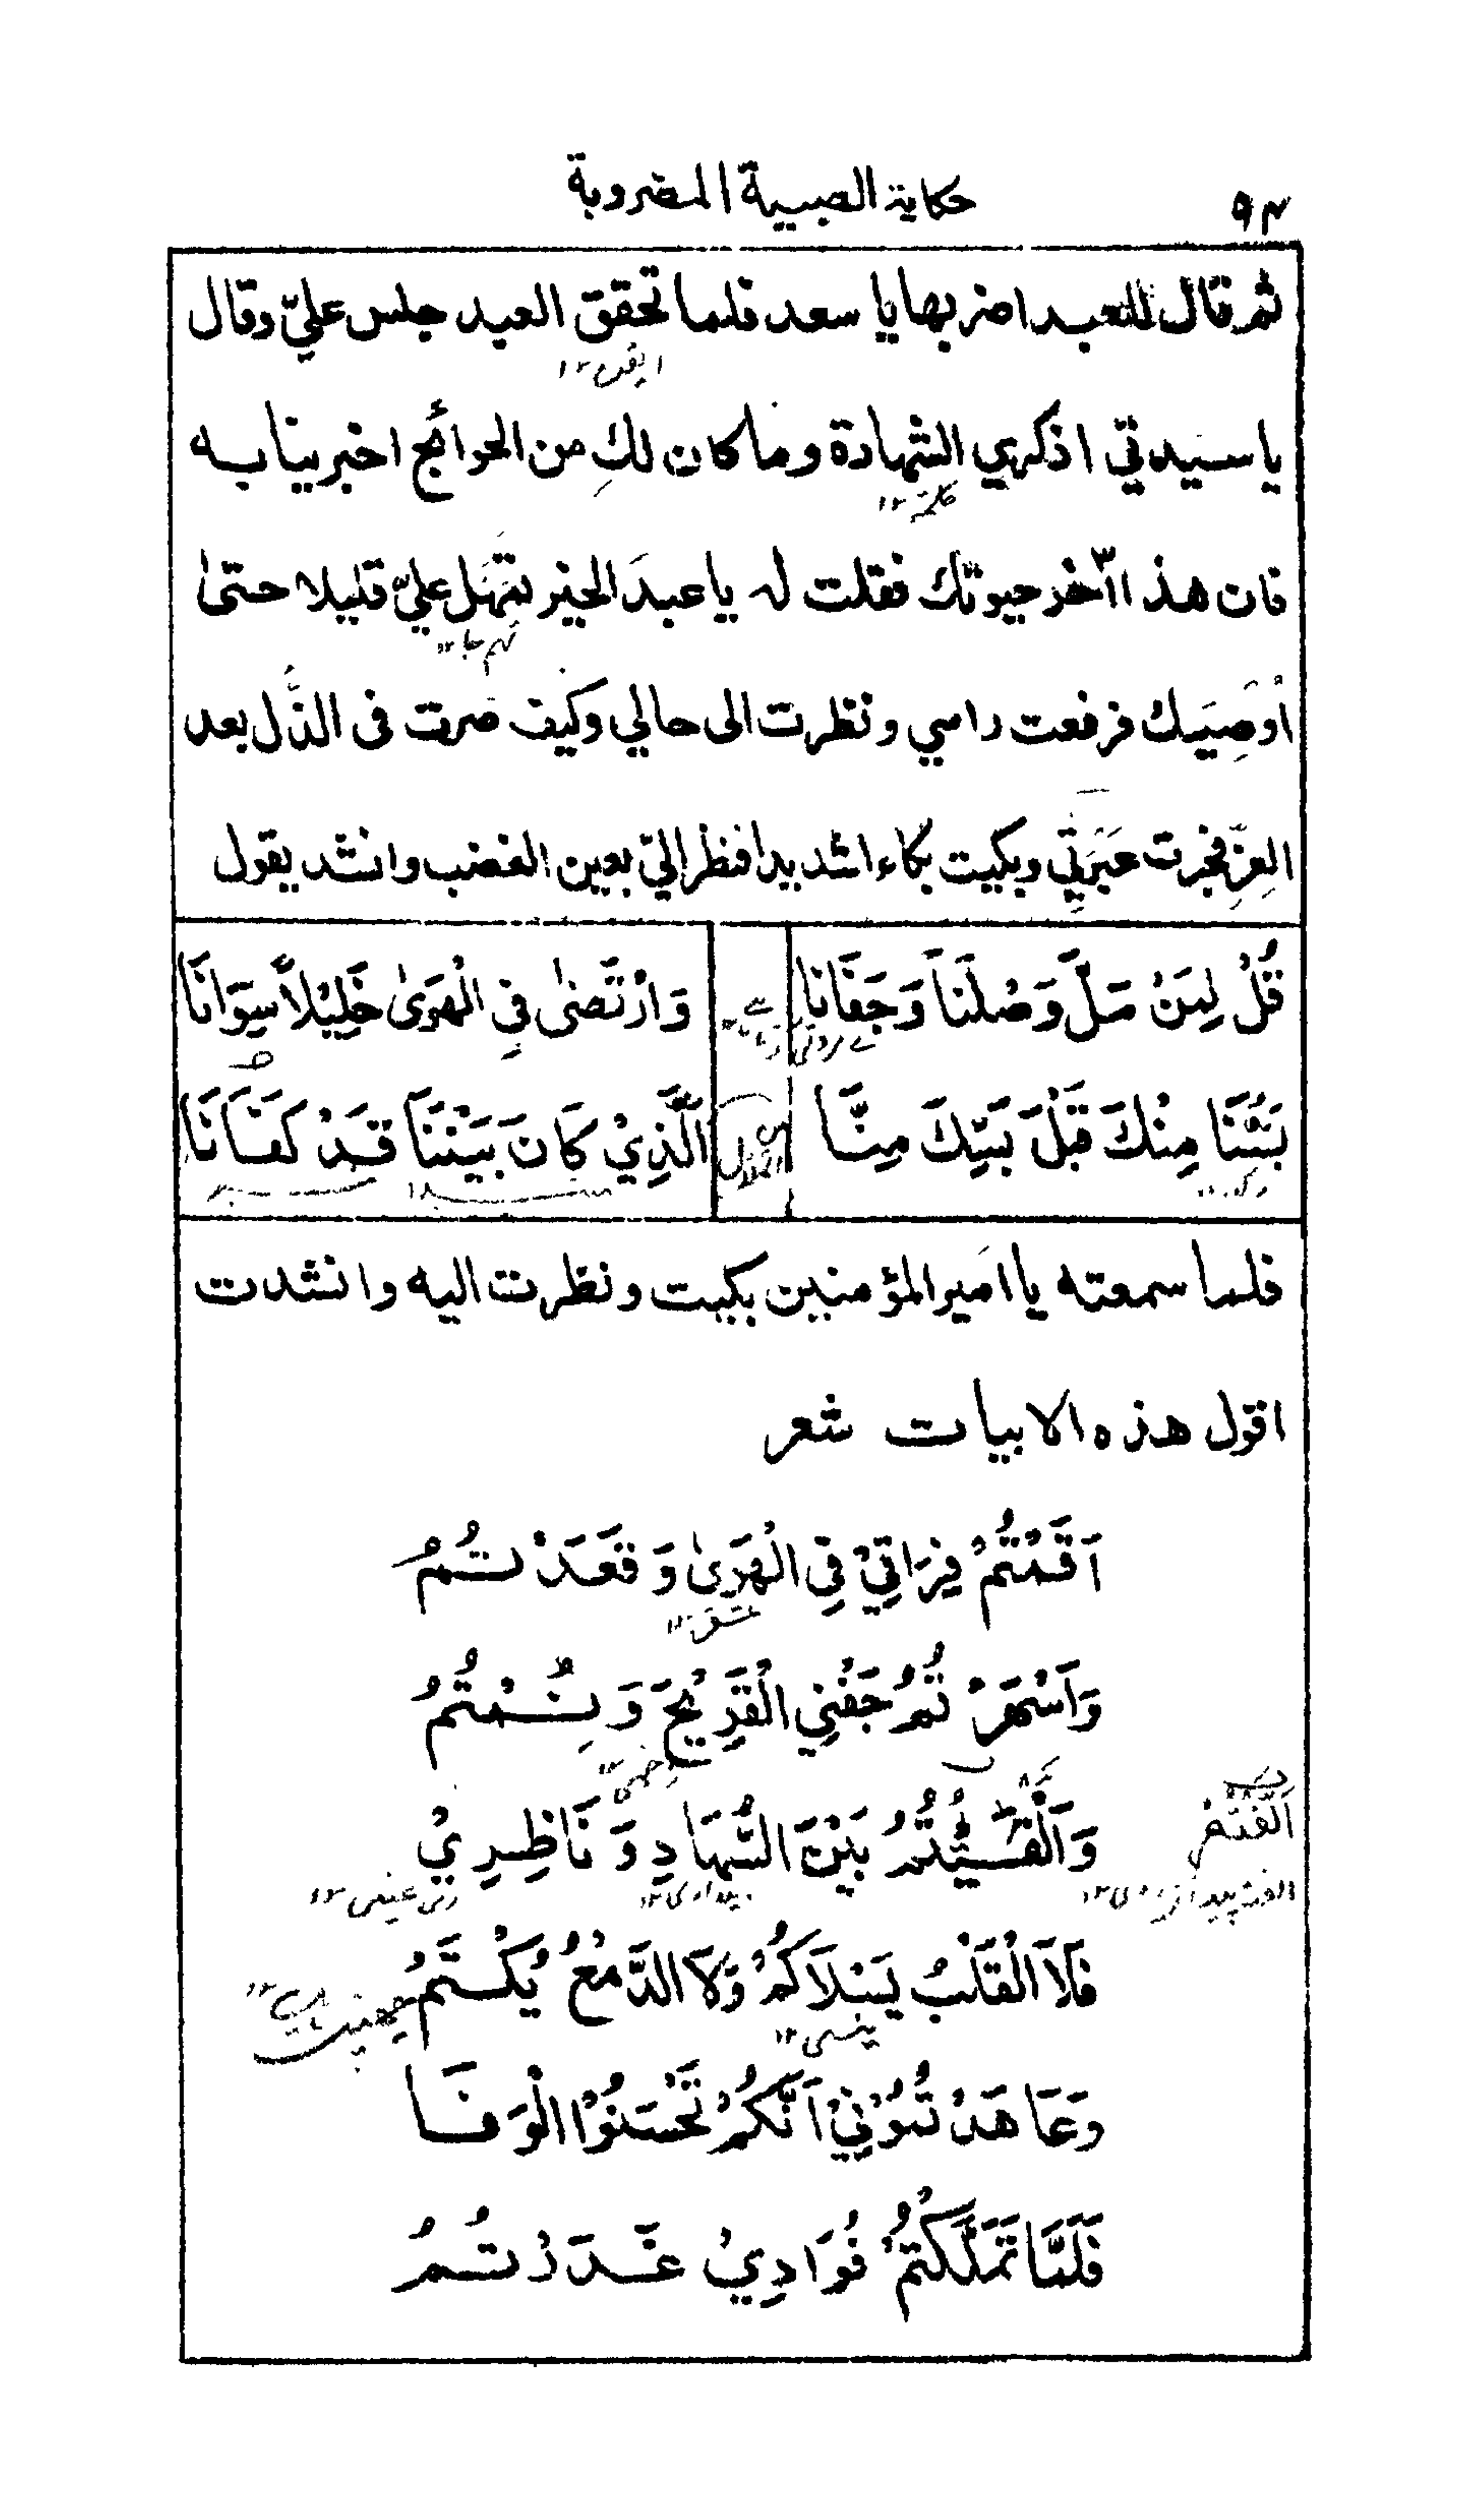 ٩٤
حكاية الصبية المضروبة
ثم قال للعبد اضربها يا سعد فلما تحقق العبد جلس عليّ وقال
يا سيدتي اذكري الشهادة وما كان لكِ من الحوائج اخبرينا به
فان هذا اٰخر حيوتك فقلت له يا عبدَ الخير تمهّل عليّ قليلا حتىٰ
أُوصِيَك فرفعت راسي ونظرت الى حالي وكيف صرت فى الذُّل بعد
العِزّ فجرت عَبرَتي وبكيت بكاء اشديدا فنظر اليّ بعين الغضب وانشد يقول
قُلْ لِمَنْ مَلَّ وَصْلَنَا وَجَفَانَا
وَارْتَضىٰ فِي الْهَوىٰ خَلِيْلًا سِوَانَا
بَسُّنَا مِنْكَ قَبْلَ بَسِّكَ مِنَّا
اَلَّذِيْ كَانَ بَيْنَنَا قَدْ كَفَانَا
فلما سمعته يا اميرالمؤمنين بكيت ونظرت اليه وانشدت
اقول هذه الابيات شعر
اَقَمْتُمْ فِرَاقِيْ فِي الْهَوىٰ وَقَعَدْتُمُ
وَاَسْهَرْتُمُ جَفْنِي الْقَرِيْحَ وَنِمْتُمُ
اَلَّفْتُمْ
بَيْنَ السُّهَادِ وَنَاظِرِيْ
فَلَا الْقَلْبُ يَسْلَاكُمْ وَلَا الدَّمْعُ يُكْتَمُ
وَعَاهَدْتُمُوْنِيْ اَنَّكُمْ تُحْسِنُوْا الْوَفَا
فَلَمَّا تَمَلَّكْتُمْ فُوَادِيْ غَدَرْتُمُ